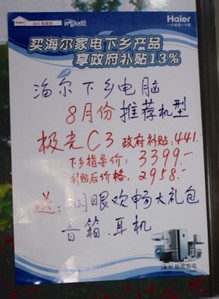 Haier
买海尔家电下乡产品
享政府补贴13%
海尔下乡电脑
8月份 推荐机型
极光C3 政府补贴,441.-
下乡指导价: 3399.-
补贴后价格: 2958.-
送: 眼欢畅大礼包
音箱.耳机